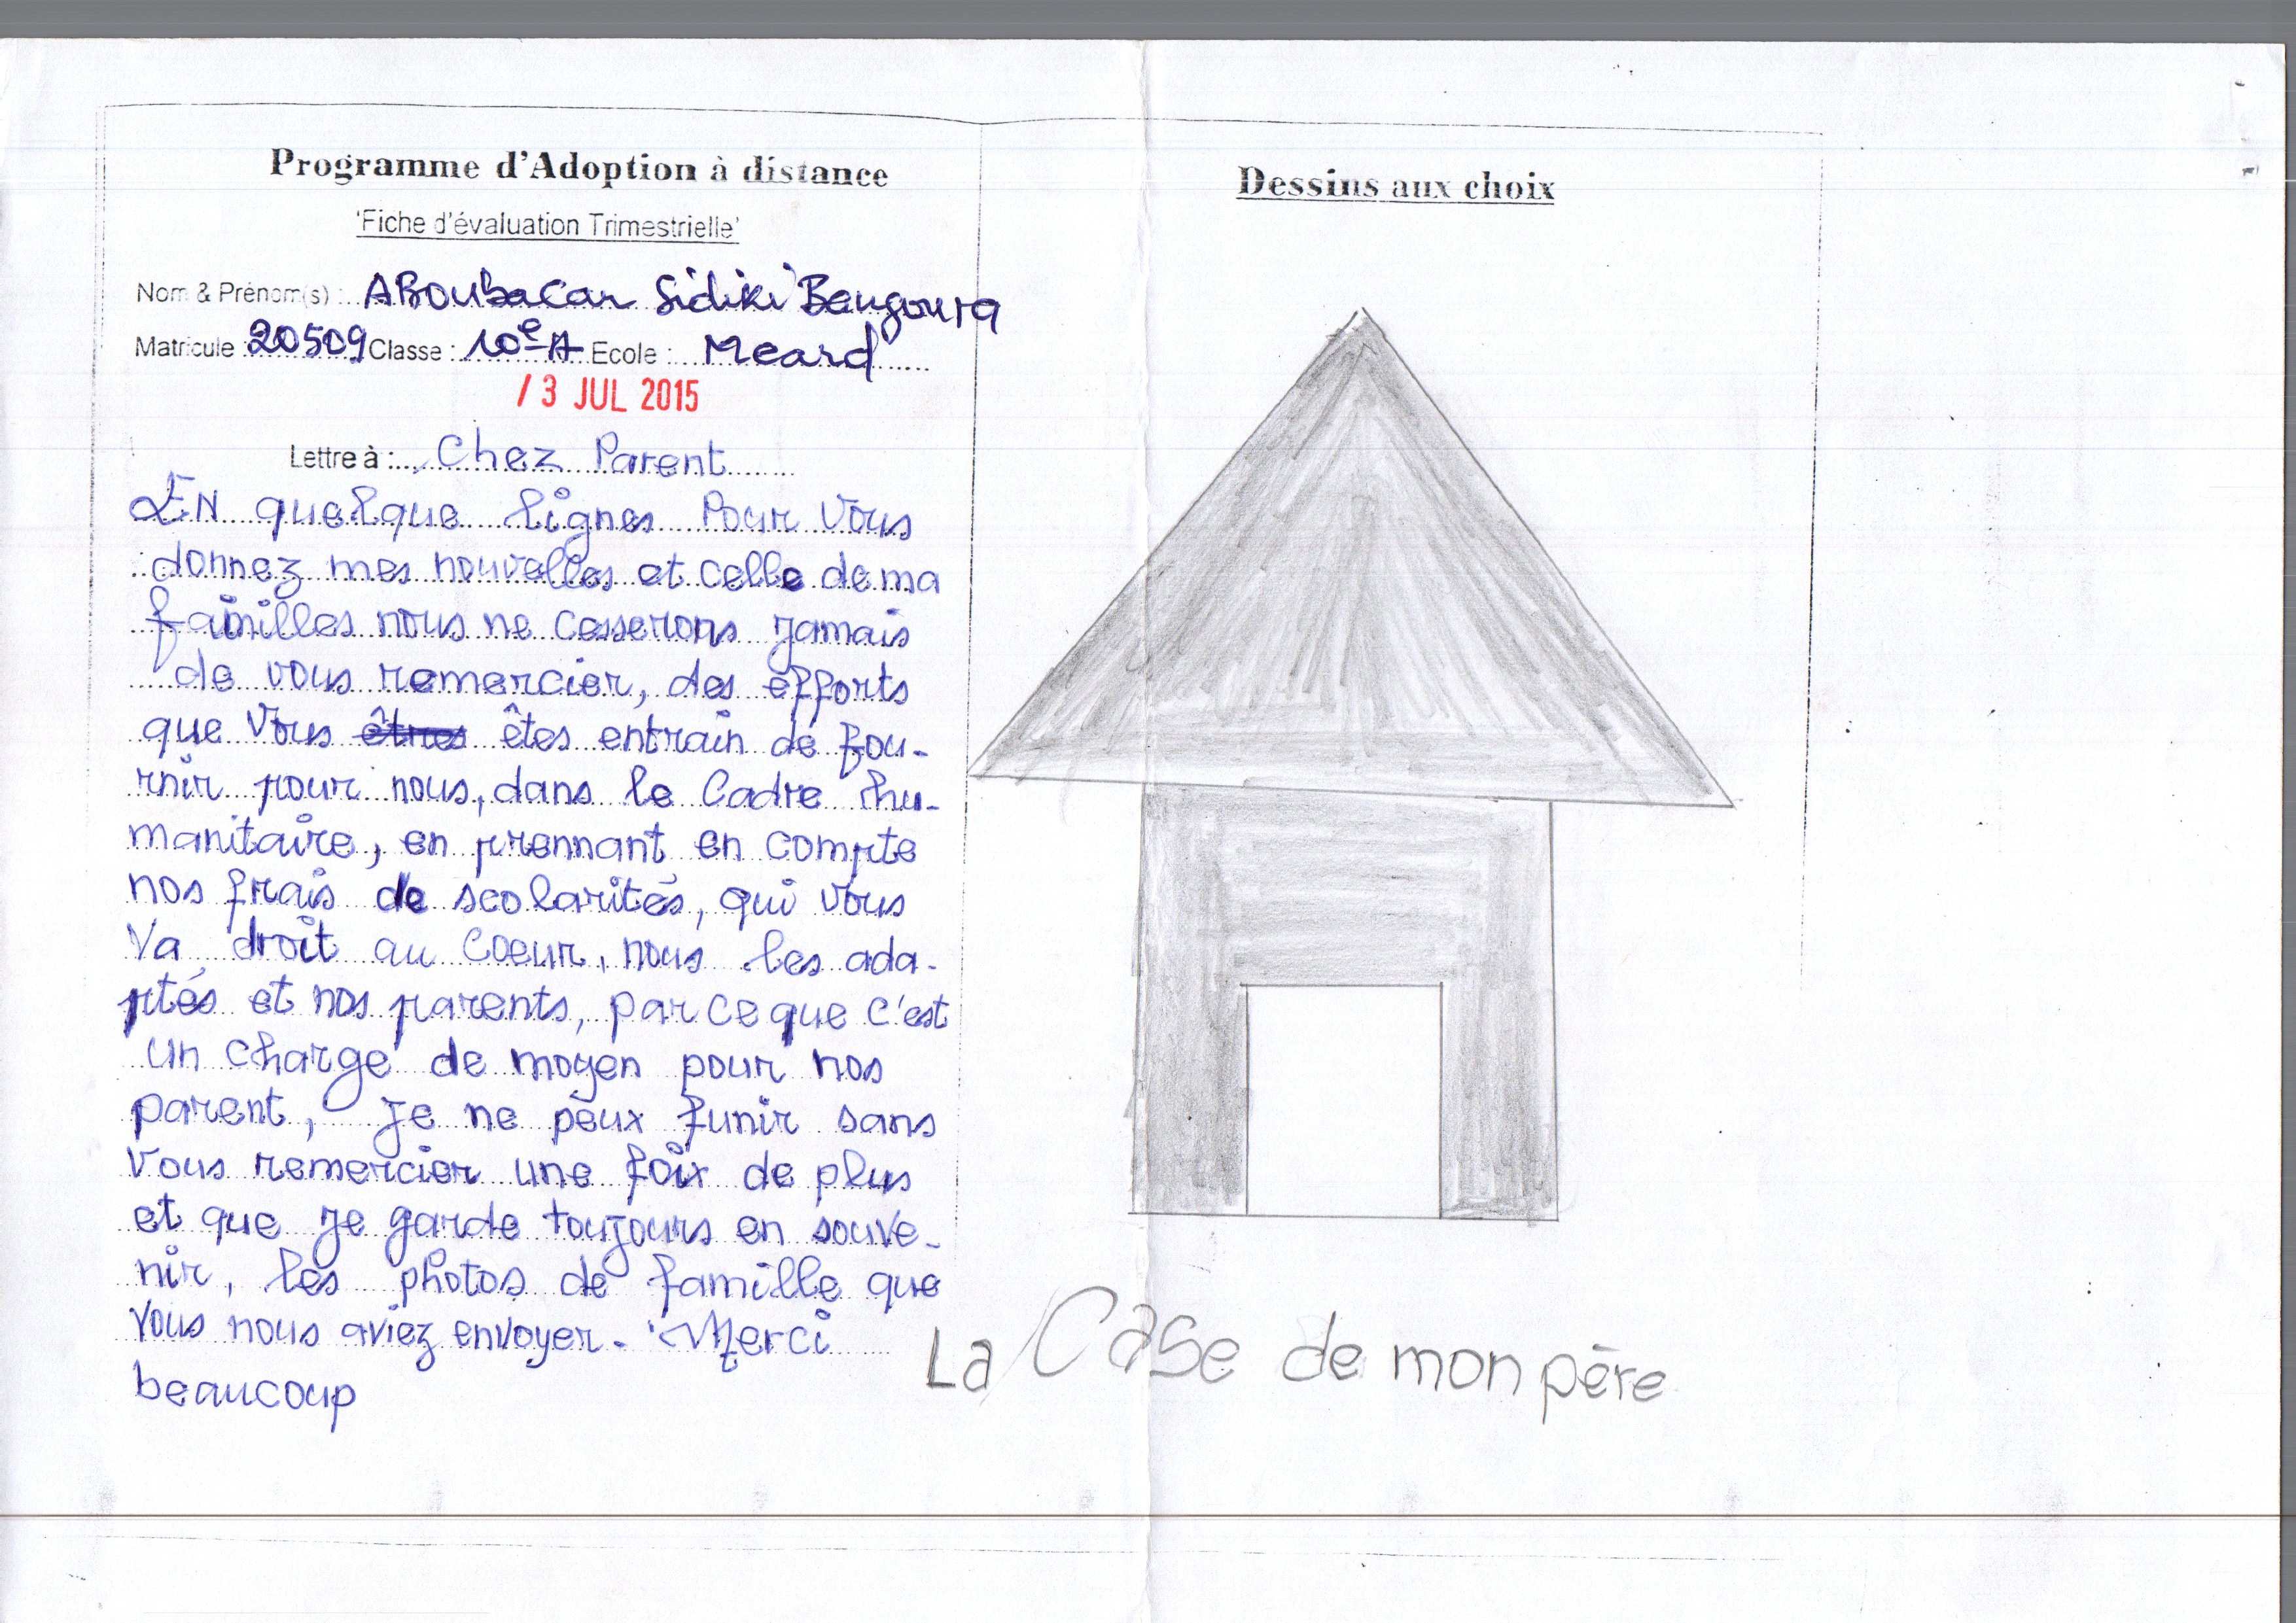 Programme d'Adoption à distance
'Fiche d'évaluation Trimestrielle'
Nom & Prénom(s) : ABoubacar Sidiki Bangoura
Matricule : 20509 Classe : 10e A Ecole : Meard
/ 3 JUL 2015
Lettre à : Chez Parent
EN quelque lignes Pour Vous
donnez mes nouvelles et celle de ma
familles nous ne cesserons jamais
de vous remercier, des efforts
que Vous êtres êtes entrain de fou-
rnir pour nous, dans le Cadre hu-
manitaire, en prennant en compte
nos frais de scolarités, qui vous
Va droit au coeur, nous les ada-
ptés et nos parents, par ce que c'est
un charge de moyen pour nos
parent, je ne peux funir sans
Vous remercier une foix de plus
et que je garde toujours en souve-
nir, les photos de famille que
Vous nous aviez envoyer. Merci
beaucoup
Dessins aux choix
La Case de mon père